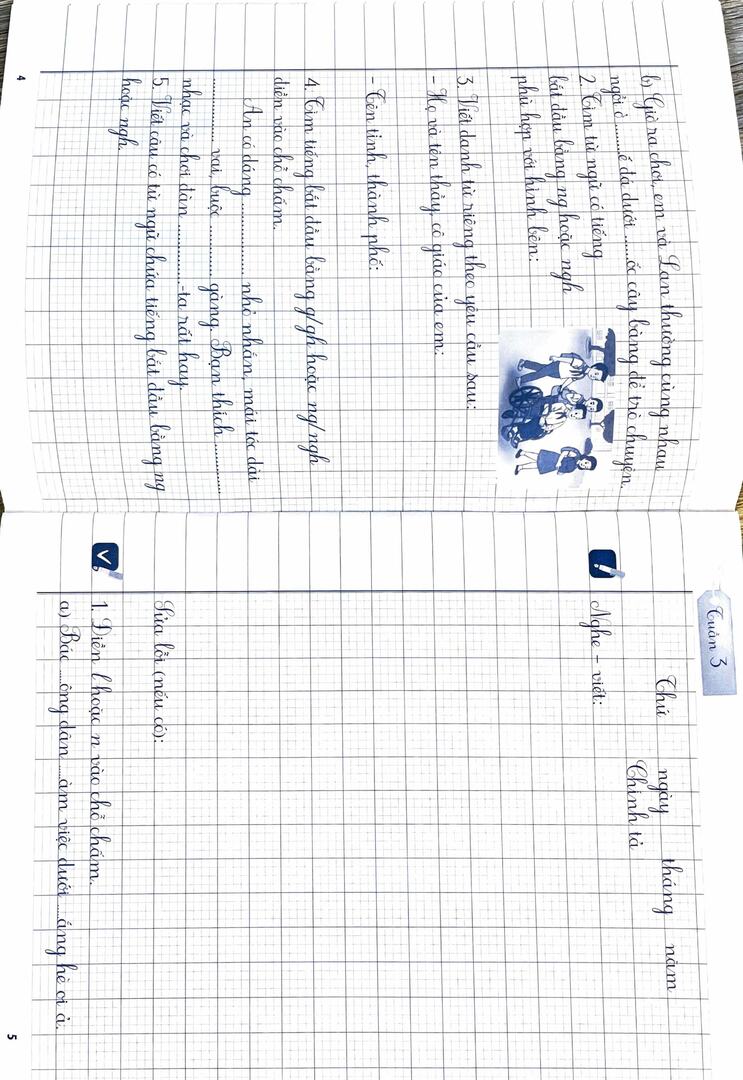 b) Giờ ra chơi, em và Lan thường cùng nhau
ngồi ở ........ế đá dưới ......ốc cây bàng để trò chuyện.
2. Tìm từ ngữ có tiếng
bắt đầu bằng ng hoặc ngh
phù hợp với hình bên:
3. Viết danh từ riêng theo yêu cầu sau:
- Họ và tên thầy, cô giáo của em:
- Tên tỉnh, thành phố:
4. Tìm tiếng bắt đầu bằng g/gh hoặc ng/ngh
điền vào chỗ chấm.
An có dáng .............. nhỏ nhắn, mái tóc dài
.............. vai, buộc .............. gàng. Bạn thích ..............
nhạc và chơi đàn ..............-ta rất hay.
5. Viết câu có từ ngữ chứa tiếng bắt đầu bằng ng
hoặc ngh.
4
Tuần 3
Thứ ngày tháng năm
Chính tả
Nghe - viết:
Sửa lỗi (nếu có):
1. Điền l hoặc n vào chỗ chấm.
a) Bác ....ông dân ....àm việc dưới ....ắng hè oi ả.
5